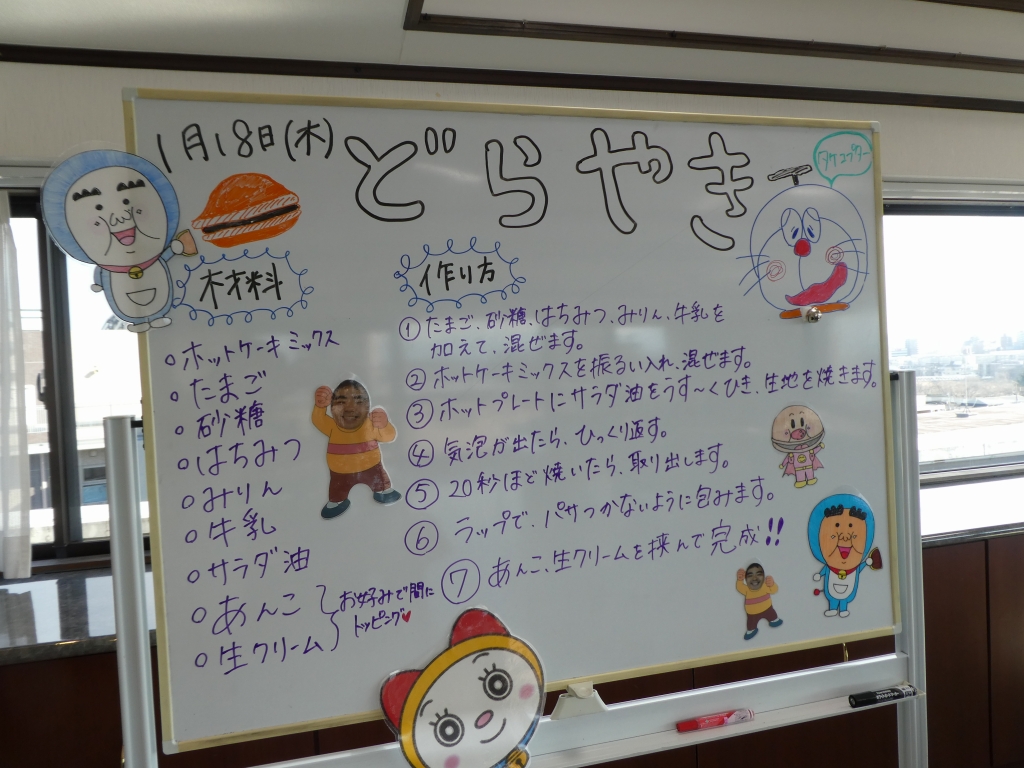 1月18日(木) どらやき
タケコプター
材料
。ホットケーキミックス
。たまご
。砂糖
。はちみつ
。みりん
。牛乳
。サラダ油
。あんこ
。生クリーム
お好みで間に
トッピング♥
作り方
① たまご、砂糖、はちみつ、みりん、牛乳を
加えて、混ぜます。
② ホットケーキミックスを振るい入れ、混ぜます。
③ ホットプレートにサラダ油をうす〜くひき、生地を焼きます。
④ 気泡が出たら、ひっくり返す。
⑤ 20秒ほど焼いたら、取り出します。
⑥ ラップで、パサつかないように包みます。
⑦ あんこ、生クリームを挟んで完成!!